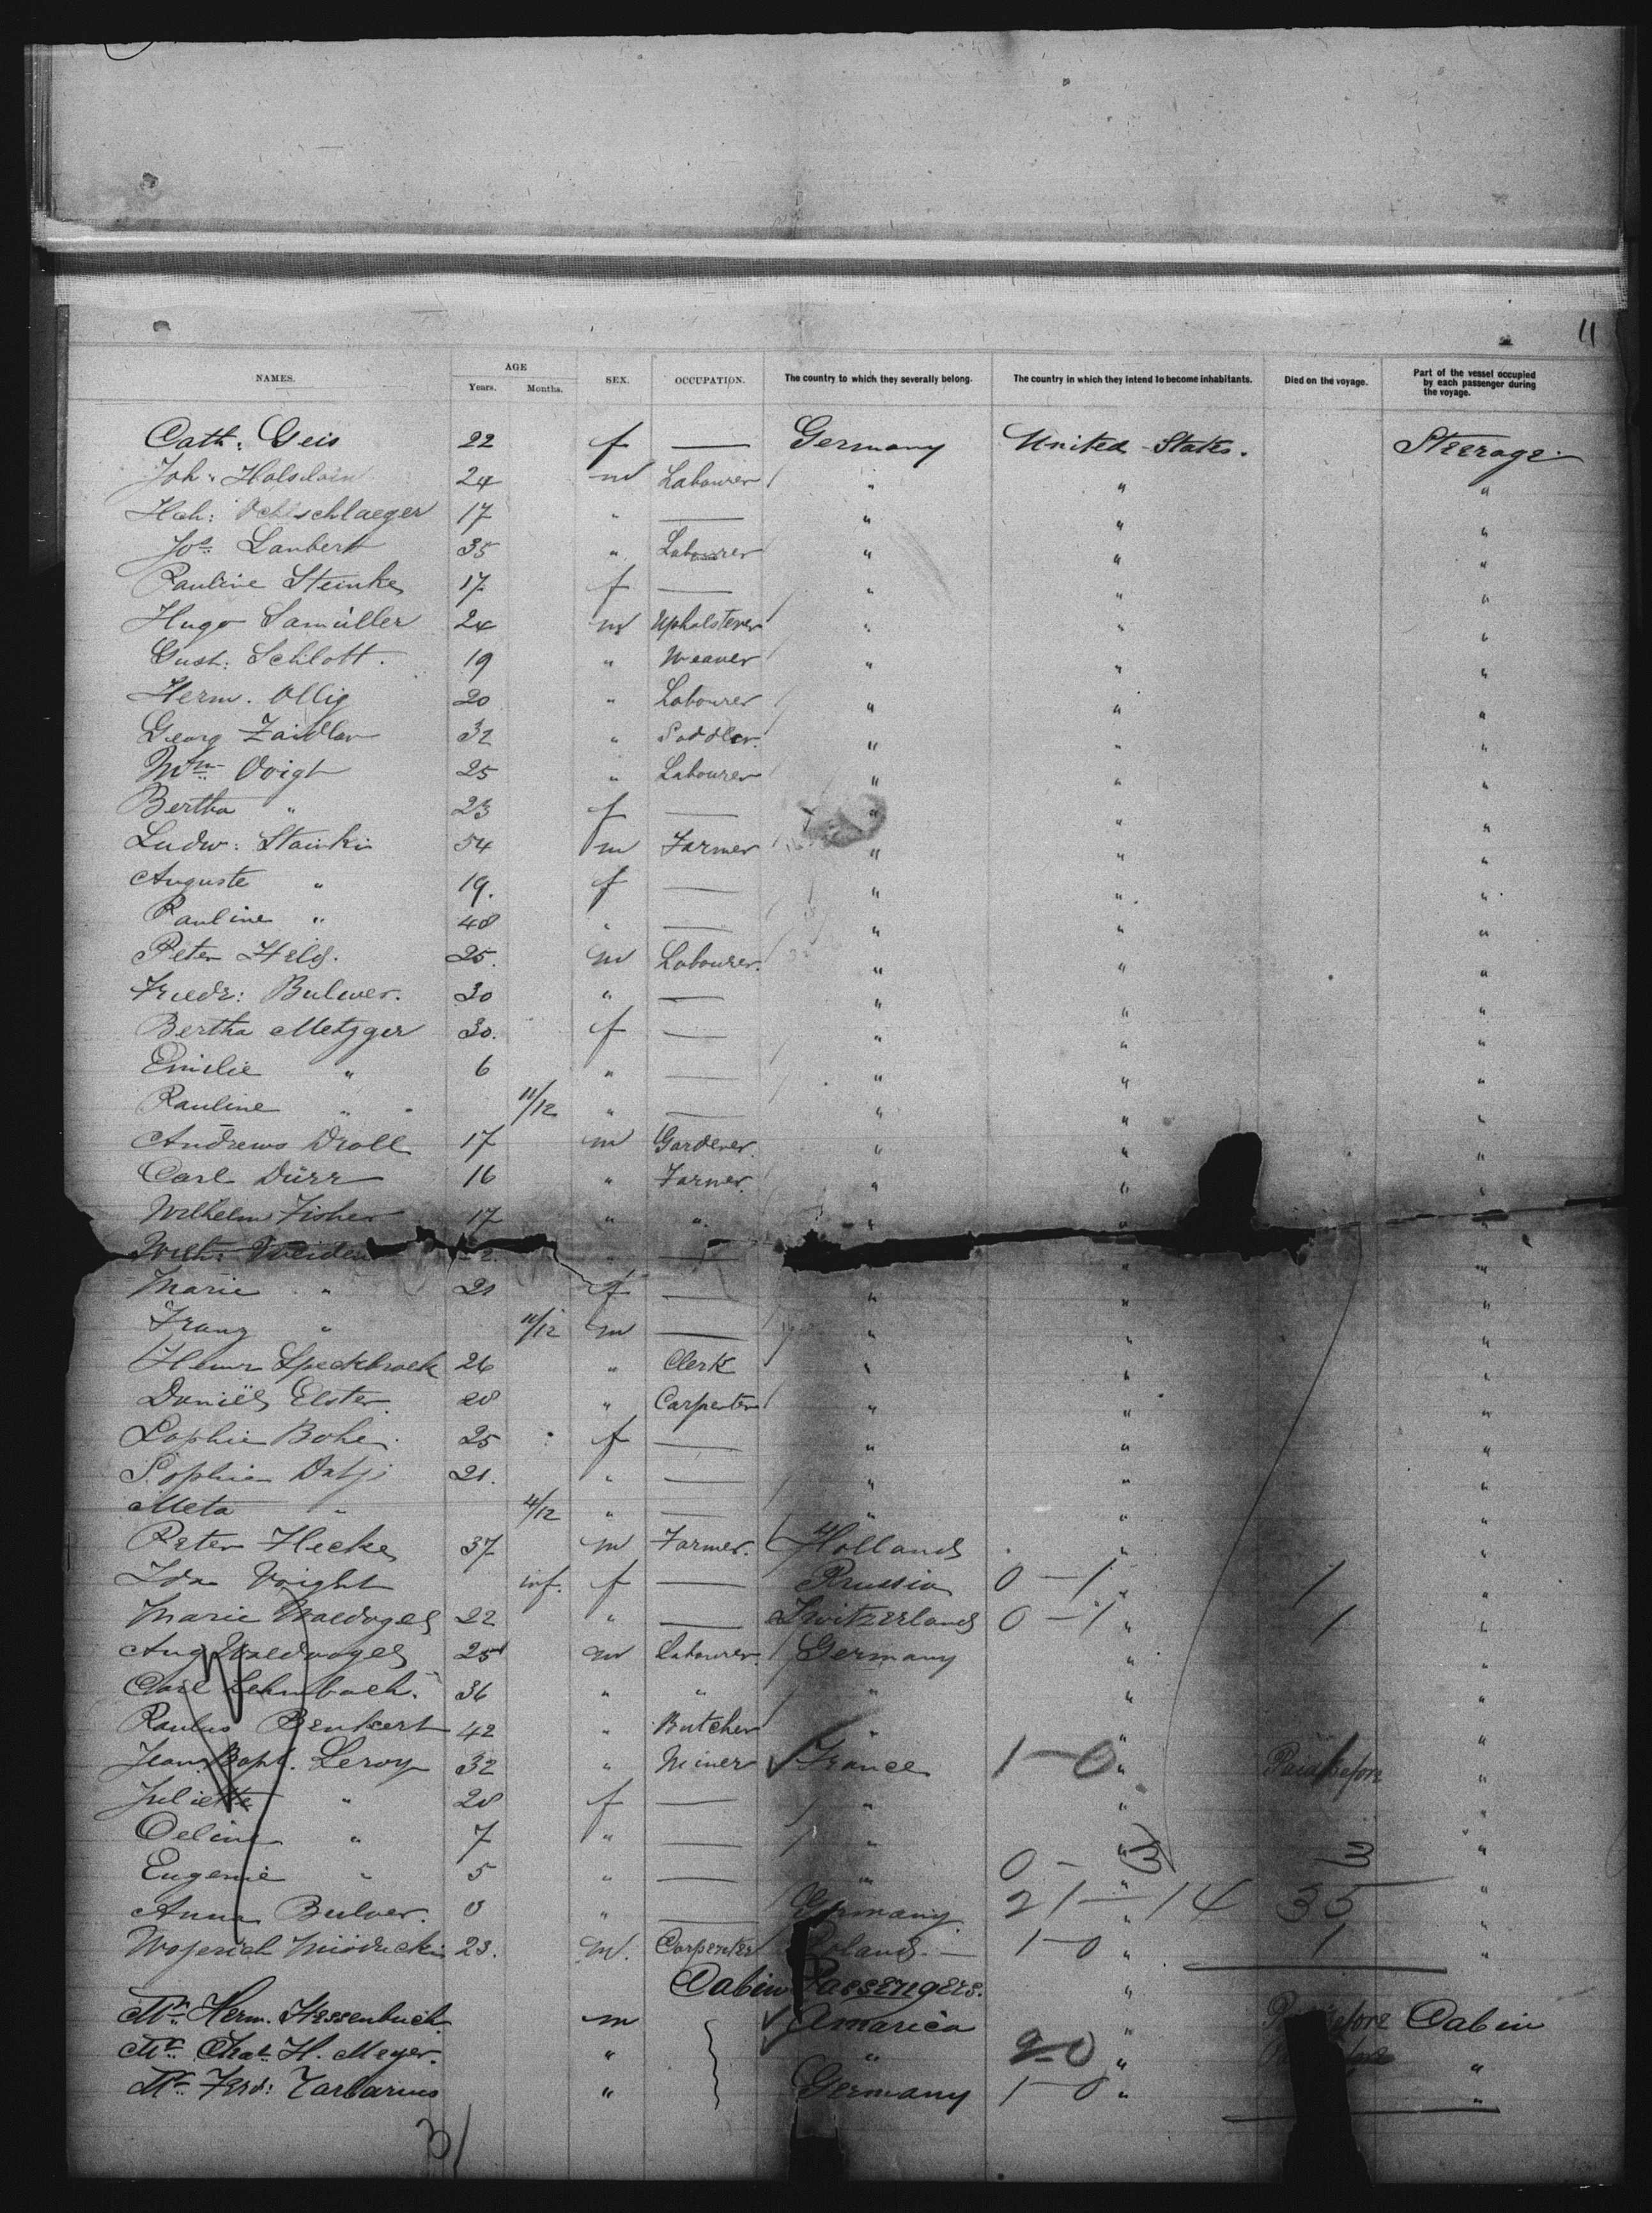 11
NAMES. AGE Years. Months. SEX. OCCUPATION. The country to which they severally belong. The country in which they intend to become inhabitants. Died on the voyage. Part of the vessel occupied by each passenger during the voyage.
Cath: Geis 22 f — Germany United States. Steerage
Joh: 24 m Labourer " " "
Hch: 17 " — " " "
Jos: Lanbert 35 " Labourer " " "
Pauline Steinke 17 f — " " "
Hugo Samüller 24 m Upholsterer " " "
Gust: Schlott. 19 " Weaver " " "
Herm. Ollig 20 " Labourer " " "
Georg Zaidler 32 " Saddler. " " "
Wm Voigt 25 " Labourer " " "
Bertha " 23 f — " " "
Ludw: Stainki 54 m Farmer " " "
Auguste " 19. f — " " "
Pauline " 48 " — " " "
Peter Held. 25. m Labourer. " " "
Friedr: Bulwer. 30 " — " " "
Bertha Metzger 30. f — " " "
Emilie " 6 " — " " "
Pauline " 11/12 " — " " "
Andrews Droll 17 m Gardener. " " "
Carl Dürr 16 " Farmer. " " "
Wilhelm Fisher 17 " " " " "
Wilh: " — " "
Marie " 21 f — " " "
Franz " 11/12 m — " " "
26 " Clerk " " "
Daniel Elster 28 " Carpenter " " "
Sophie Bohe. 25 f — " " "
Sophie 21. " — " " "
Meta " 4/12 " — " " "
Peter Hecke 37 m Farmer. Holland " "
Ida Voight inf. f — Prussia 0 — 1 " 1 "
Marie Waldvogel 22 " — Switzerland 0 — 1 " 1 "
Aug Waldvogel 25 m Labourer. Germany " "
Carl Lehmbach. 36 " " " " "
Paulus Benkert 42 " Butcher " " "
Jean Bapt. Leroy 32 " Miner France 1 — 0 " Paid before "
Juliette " 28 f — " " "
Celine " 7 " — " " "
Eugenie " 5 " — " 0 — 3 " 3 "
Anna Bulver. 8 " — Germany 21 — 14 " 35 "
23. m. Carpenter Poland. — 1 — 0 " 1 "
Cabin Passengers.
Mr. Herm. Hessenbuch m America " Cabin
Mr. Chas. H. Meyer. " " 2-0 " "
Mr. Ferd: Tarbarius " Germany 1 — 0 " "
31